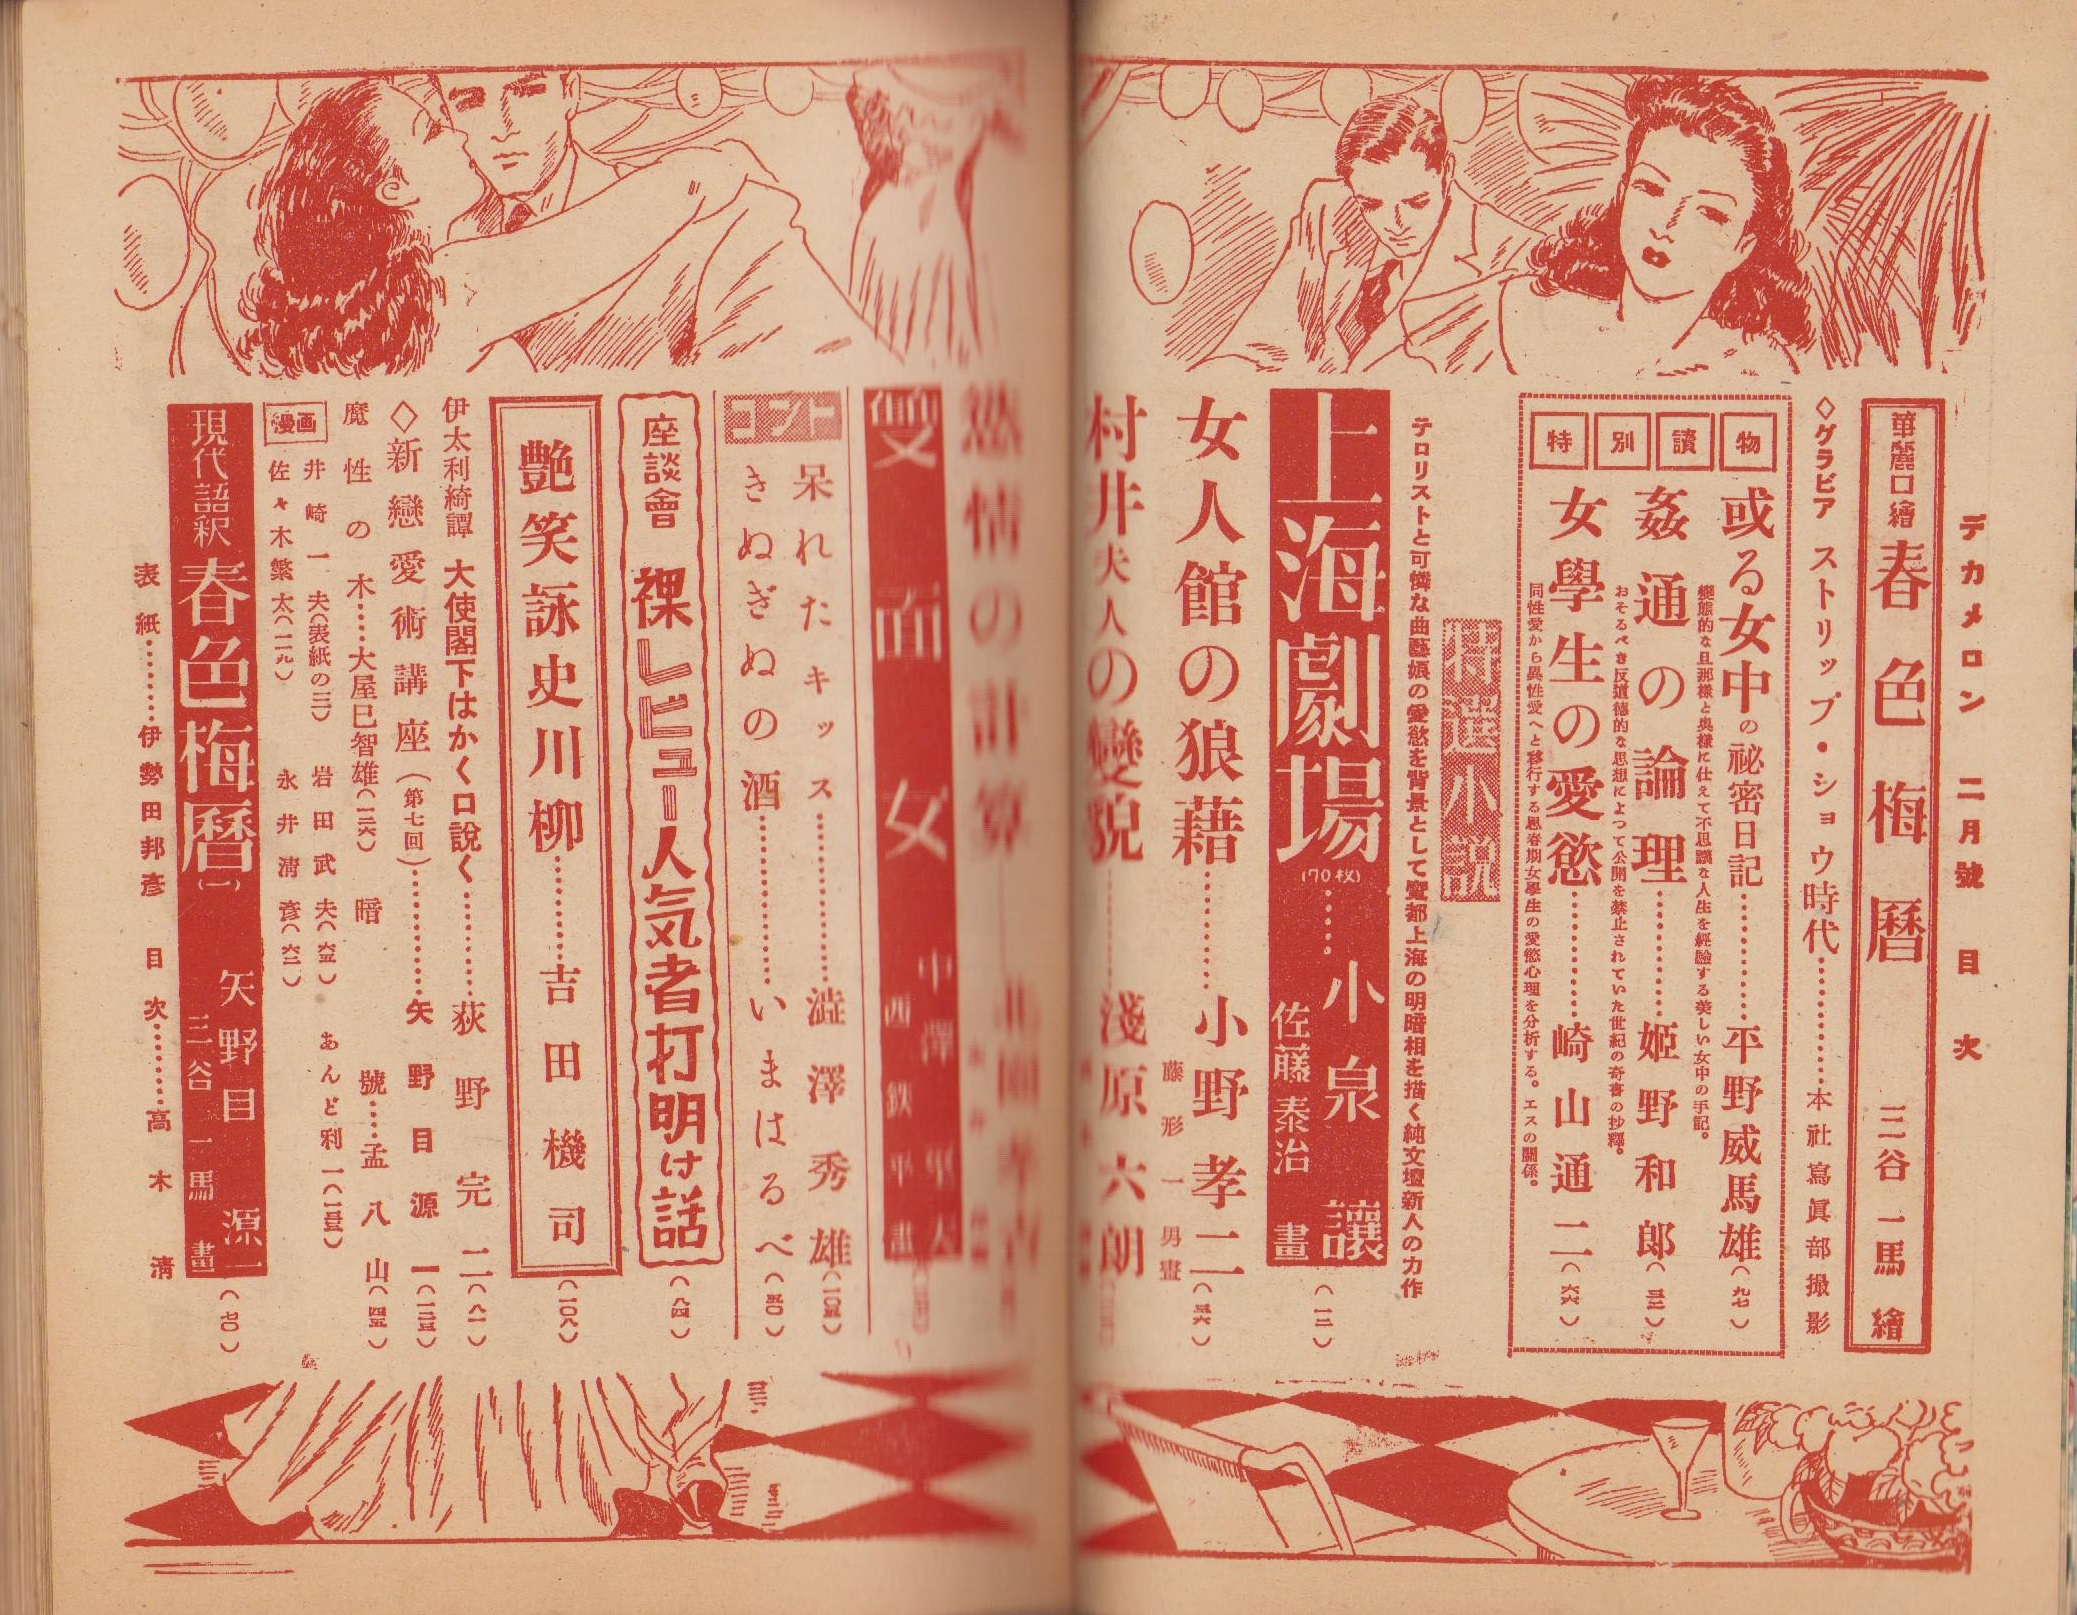 デカメロン 二月號 目次
華麗口繪 春色梅暦 三谷一馬 繪
◇グラビア ストリップ・ショウ時代…………本社寫眞部撮影
特別讀物
或る女中の祕密日記…………平野威馬雄(九七)
變態的な旦那様と奥様に仕えて不思議な人生を經驗する美しい女中の手記。
姦通の論理…………姫野和郎
おそるべき反道德的な思想によつて公開を禁止されていた世紀の奇書の抄釋。
女學生の愛慾…………崎山通二(六六)
同性愛から異性愛へと移行する思春期女學生の愛慾心理を分析する。エスの關係。
特選小説
テロリストと可憐な曲藝娘の愛慾を背景として魔都上海の明暗相を描く純文壇新人の力作
上海劇場(70枚)……小泉讓 佐藤泰治畫(一二)
女人館の狼藉…………小野孝二(五六)
藤形一男畫
村井夫人の變貌…………淺原六朗
燃情の計算
雙面女 中澤 西鉄平畫
コント
呆れたキッス…………澁澤秀雄(一〇五)
きぬぎぬの酒…………いまはるべ(五〇)
座談會 裸レビュー人気者打明け話(八四)
艶笑詠史川柳…………吉田機司(一〇八)
伊太利綺譚 大使閣下はかく口説く…………荻野完二(八一)
◇新戀愛術講座(第七回)…………矢野目源一(一二五)
魔性の木……大屋巳智雄(一二六) 暗號……孟八山(四五)
漫画
井崎一夫(表紙の三) 岩田武夫(六五) あんど利一(一三三)
佐々木繁太(一一九) 永井淸彦(六二)
現代語釈 春色梅暦(一) 矢野目源一 三谷一馬畫(七〇)
表紙…………伊勢田邦彦 目次…………高木淸